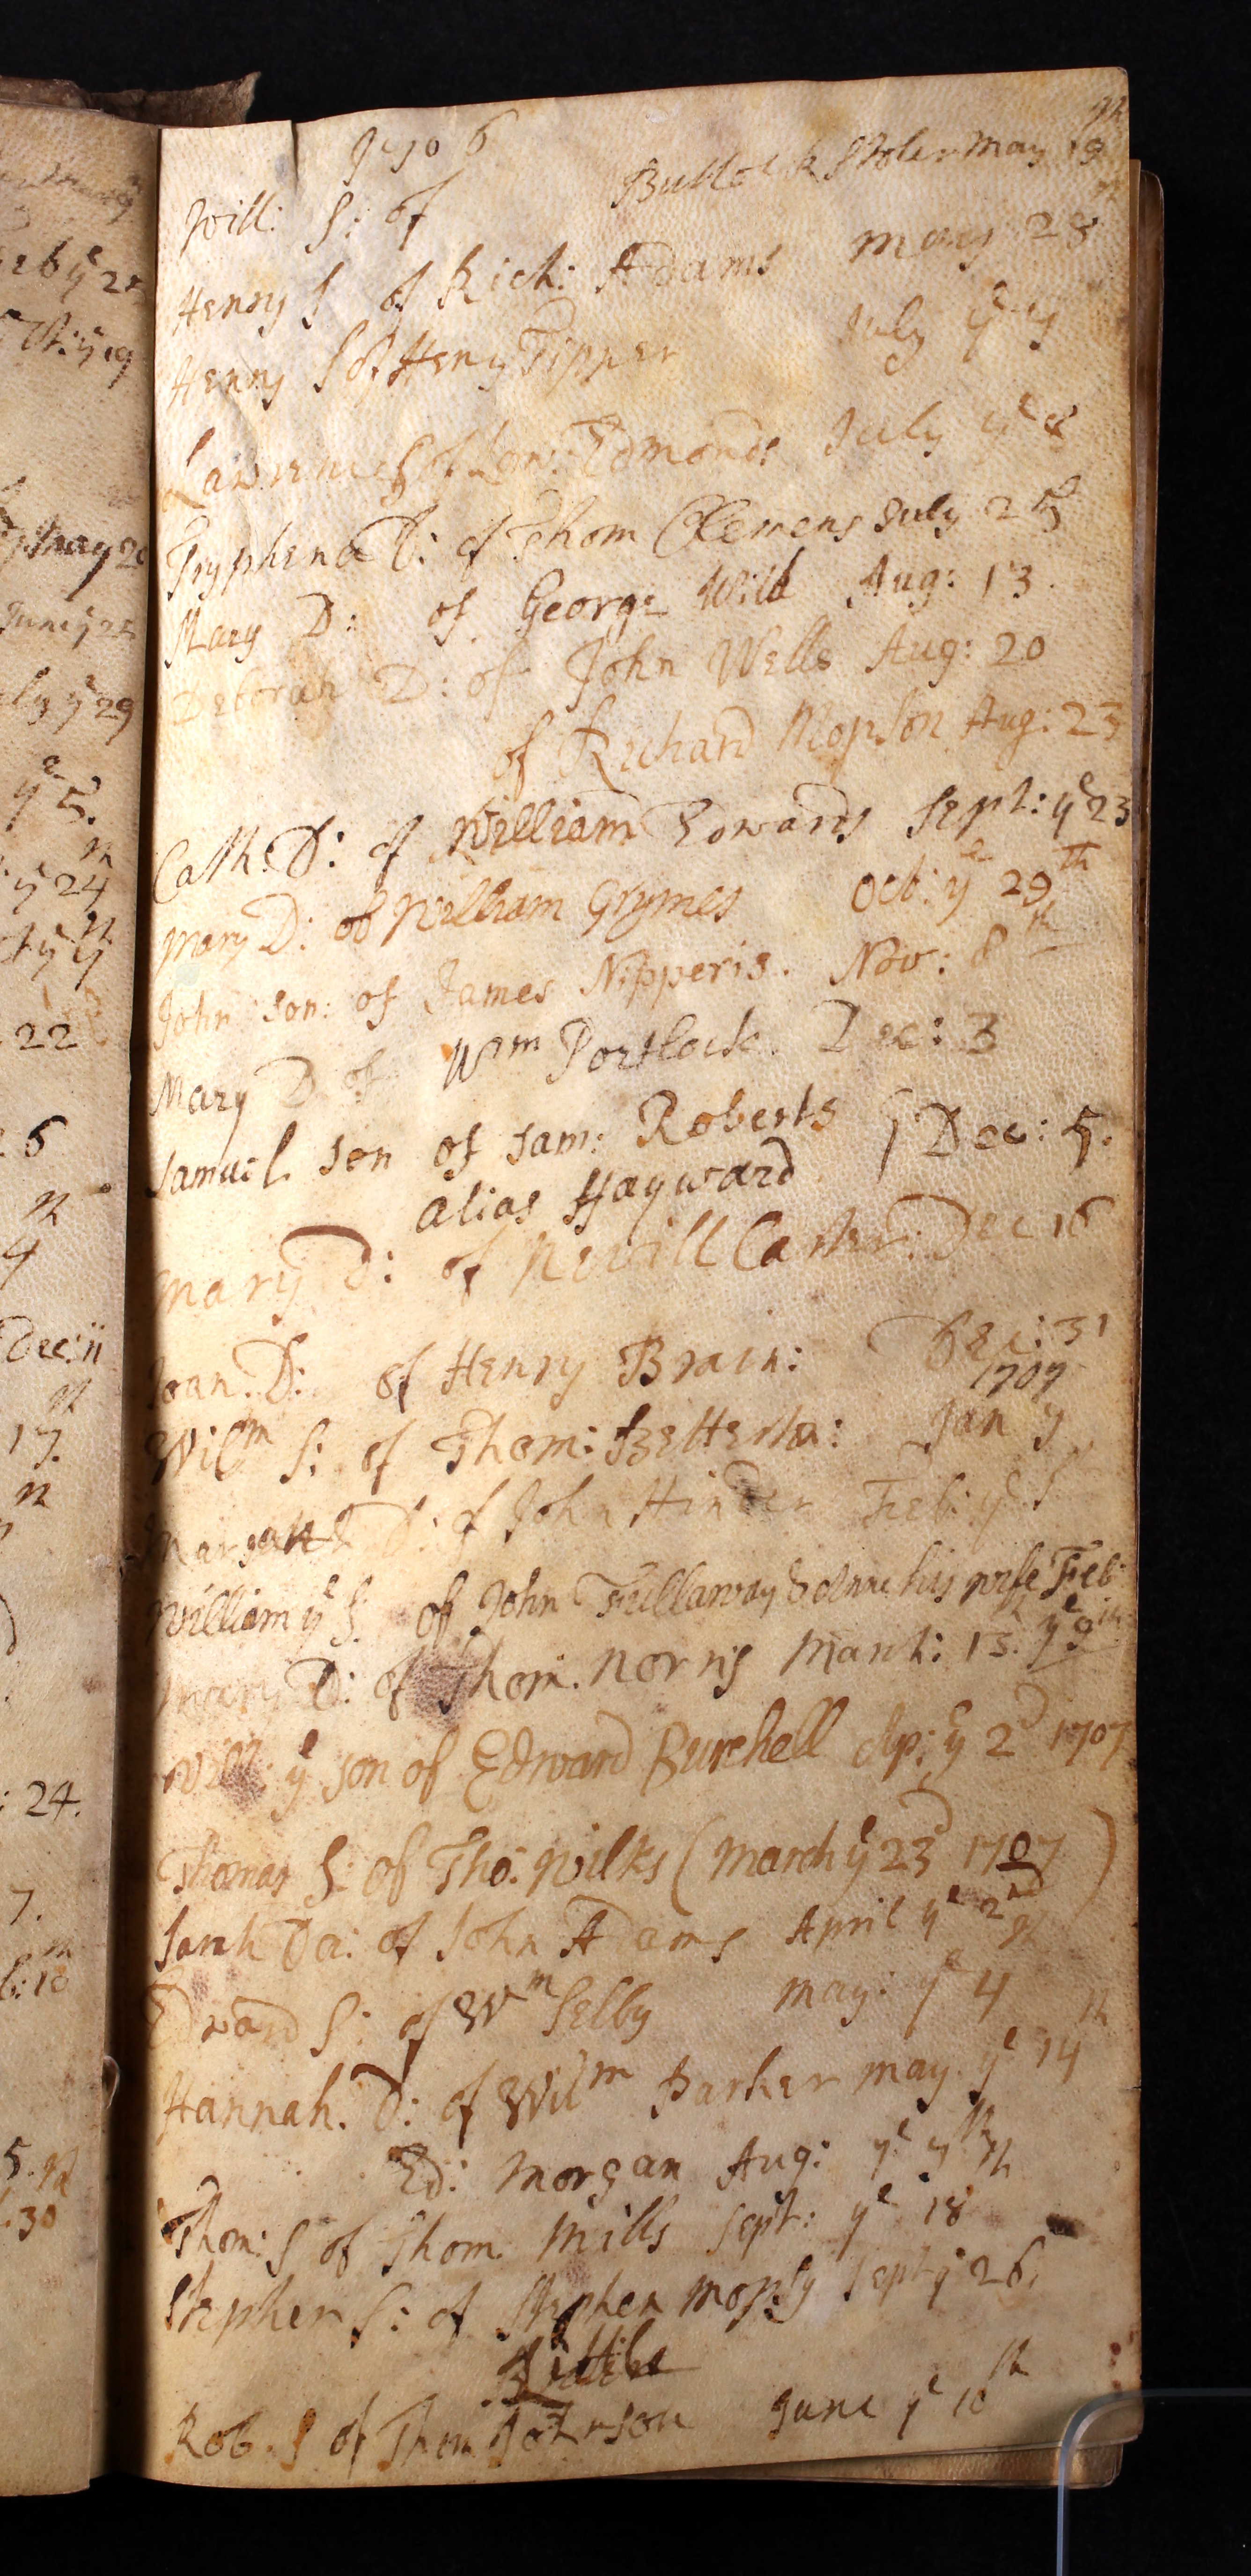 1706
Will: S: of Bullock Stoler May 19th
Henry S of Rich: Adams May 23th
Henry S of Heny Tipper July ye 7
Lawrence S of Law: Edmonds July ye 8
Tryphena D: of Thom Clemens July 25
Mary D: of George Wild Aug: 13.
Deborah D: of John Wells Aug: 20
of Richard Mopson Aug: 23
Cath: D: of William Edwards Sept: ye 23
Mary D: of William Grymes Oct: ye 29th
John son: of James Nipperis. Nov: 8th
Mary D of Wm Portlock. Dec: 3
Samuel son of Sam: Roberts Dec: 5.
alias Hayward
Mary D: of Nevill Carter: Dec 16
Joan. D: of Henry Brain: Dec: 31
1707
Wilm S: of Thom: Jan
D: of John Hinder Feb: ye
William ye S: of John Fullaway & his wife Feb:
ye 9th
Mary D: of Thom. Norris March: 13.
Will: ye son of Edward Burchell Ap: ye 2d 1707
Thomas S: of Tho: Wilks (March ye 23d 1707)
Sarah Da: of John Adams April ye 2nd
Edward S: of Wm Selby May: ye 4th
Hannah. D: of Wilm Parker May ye 14th
Ed: Morgan Aug: ye 7th
Thom: S of Thom. Mills Sept: ye 18th
Stephen S: of Stephen Mopsy Sept ye 26
Rob. S of Thom Johnson June ye 10th